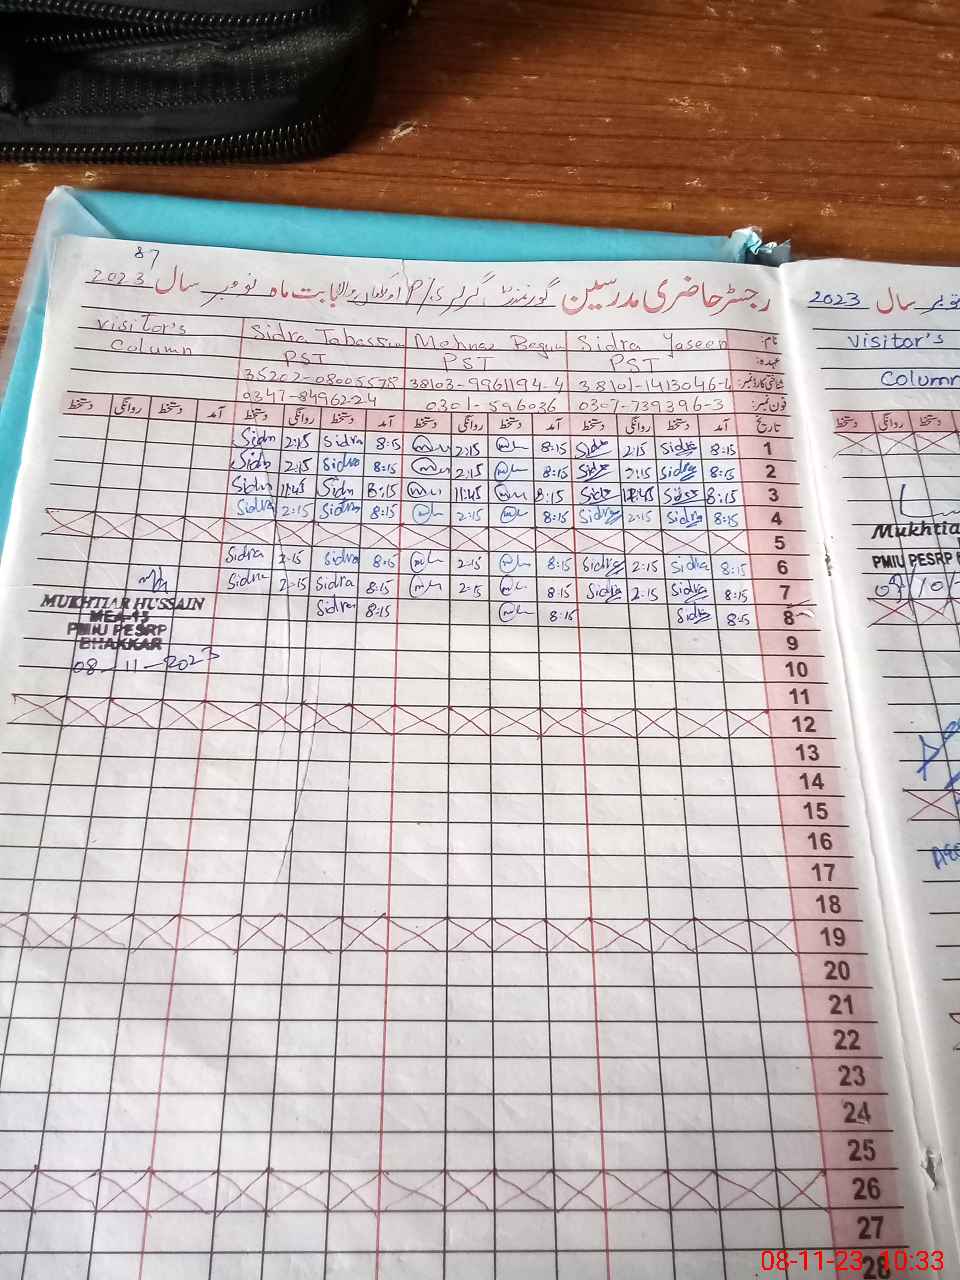 87
رجسٹر حاضری مدرسین گورنمنٹ گرلز P/S بابت ماہ نومبر سال 2023
Visitor's Column Sidra Tabassum Mehnaz Begum Sidra Yaseen نام:
PST PST PST عہدہ:
35202-08005578 38103-9961194-4 38101-1413046-4 شناختی کارڈ نمبر:
0347-84962-24 0301-596036 0307-739396-3 فون نمبر:
دستخط روانگی دستخط آمد دستخط روانگی دستخط آمد دستخط روانگی دستخط آمد دستخط روانگی دستخط آمد تاریخ
Sidra 2:15 Sidra 8:15 2:15 8:15 Sidra 2:15 Sidra 8:15 1
Sidra 2:15 Sidra 8:15 2:15 8:15 Sidra 2:15 Sidra 8:15 2
Sidra 11:45 Sidra 8:15 11:45 8:15 Sidra 11:45 Sidra 8:15 3
Sidra 2:15 Sidra 8:15 2:15 8:15 Sidra 2:15 Sidra 8:15 4
5
Sidra 2:15 Sidra 8:15 2:15 8:15 Sidra 2:15 Sidra 8:15 6
Sidra 2:15 Sidra 8:15 2:15 8:15 Sidra 2:15 Sidra 8:15 7
Sidra 8:15 8:15 Sidra 8:15 8
MUKHTIAR HUSSAIN
MEA-13
PMIU PESRP
BHAKKAR
08-11-2023
9
10
11
12
13
14
15
16
17
18
19
20
21
22
23
24
25
26
27
28
نومبر سال 2023
Visitor's
Column
دستخط روانگی دستخط
Mukhtia
PMIU PESRP
08-11-23 10:33